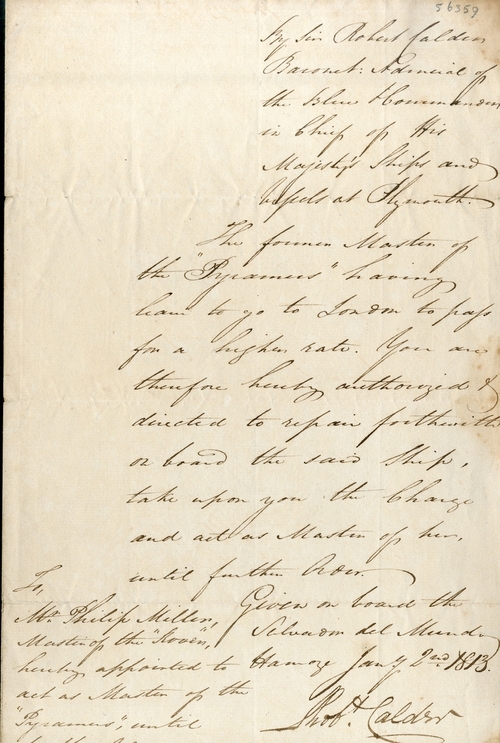 56359
By Sir Robert Calder
Baronet: Admiral of
the Blue & Commander
in Chief of His
Majesty's Ships and
Vessels at Plymouth.
The former Master of
the "Pyramus" having
leave to go to London to pass
for a higher rate. You are
therefore hereby authorized &
directed to repair forthwith
on board the said Ship,
take upon you the Charge
and act as Master of her,
until further Order.
Given on board the
Salvador del Mundo
Hamoze Jany. 2nd 1813.
Robt. Calder
To,
Mr. Philip Millen,
Master of the "Rover",
hereby appointed to
act as Master of the
"Pyramus", until